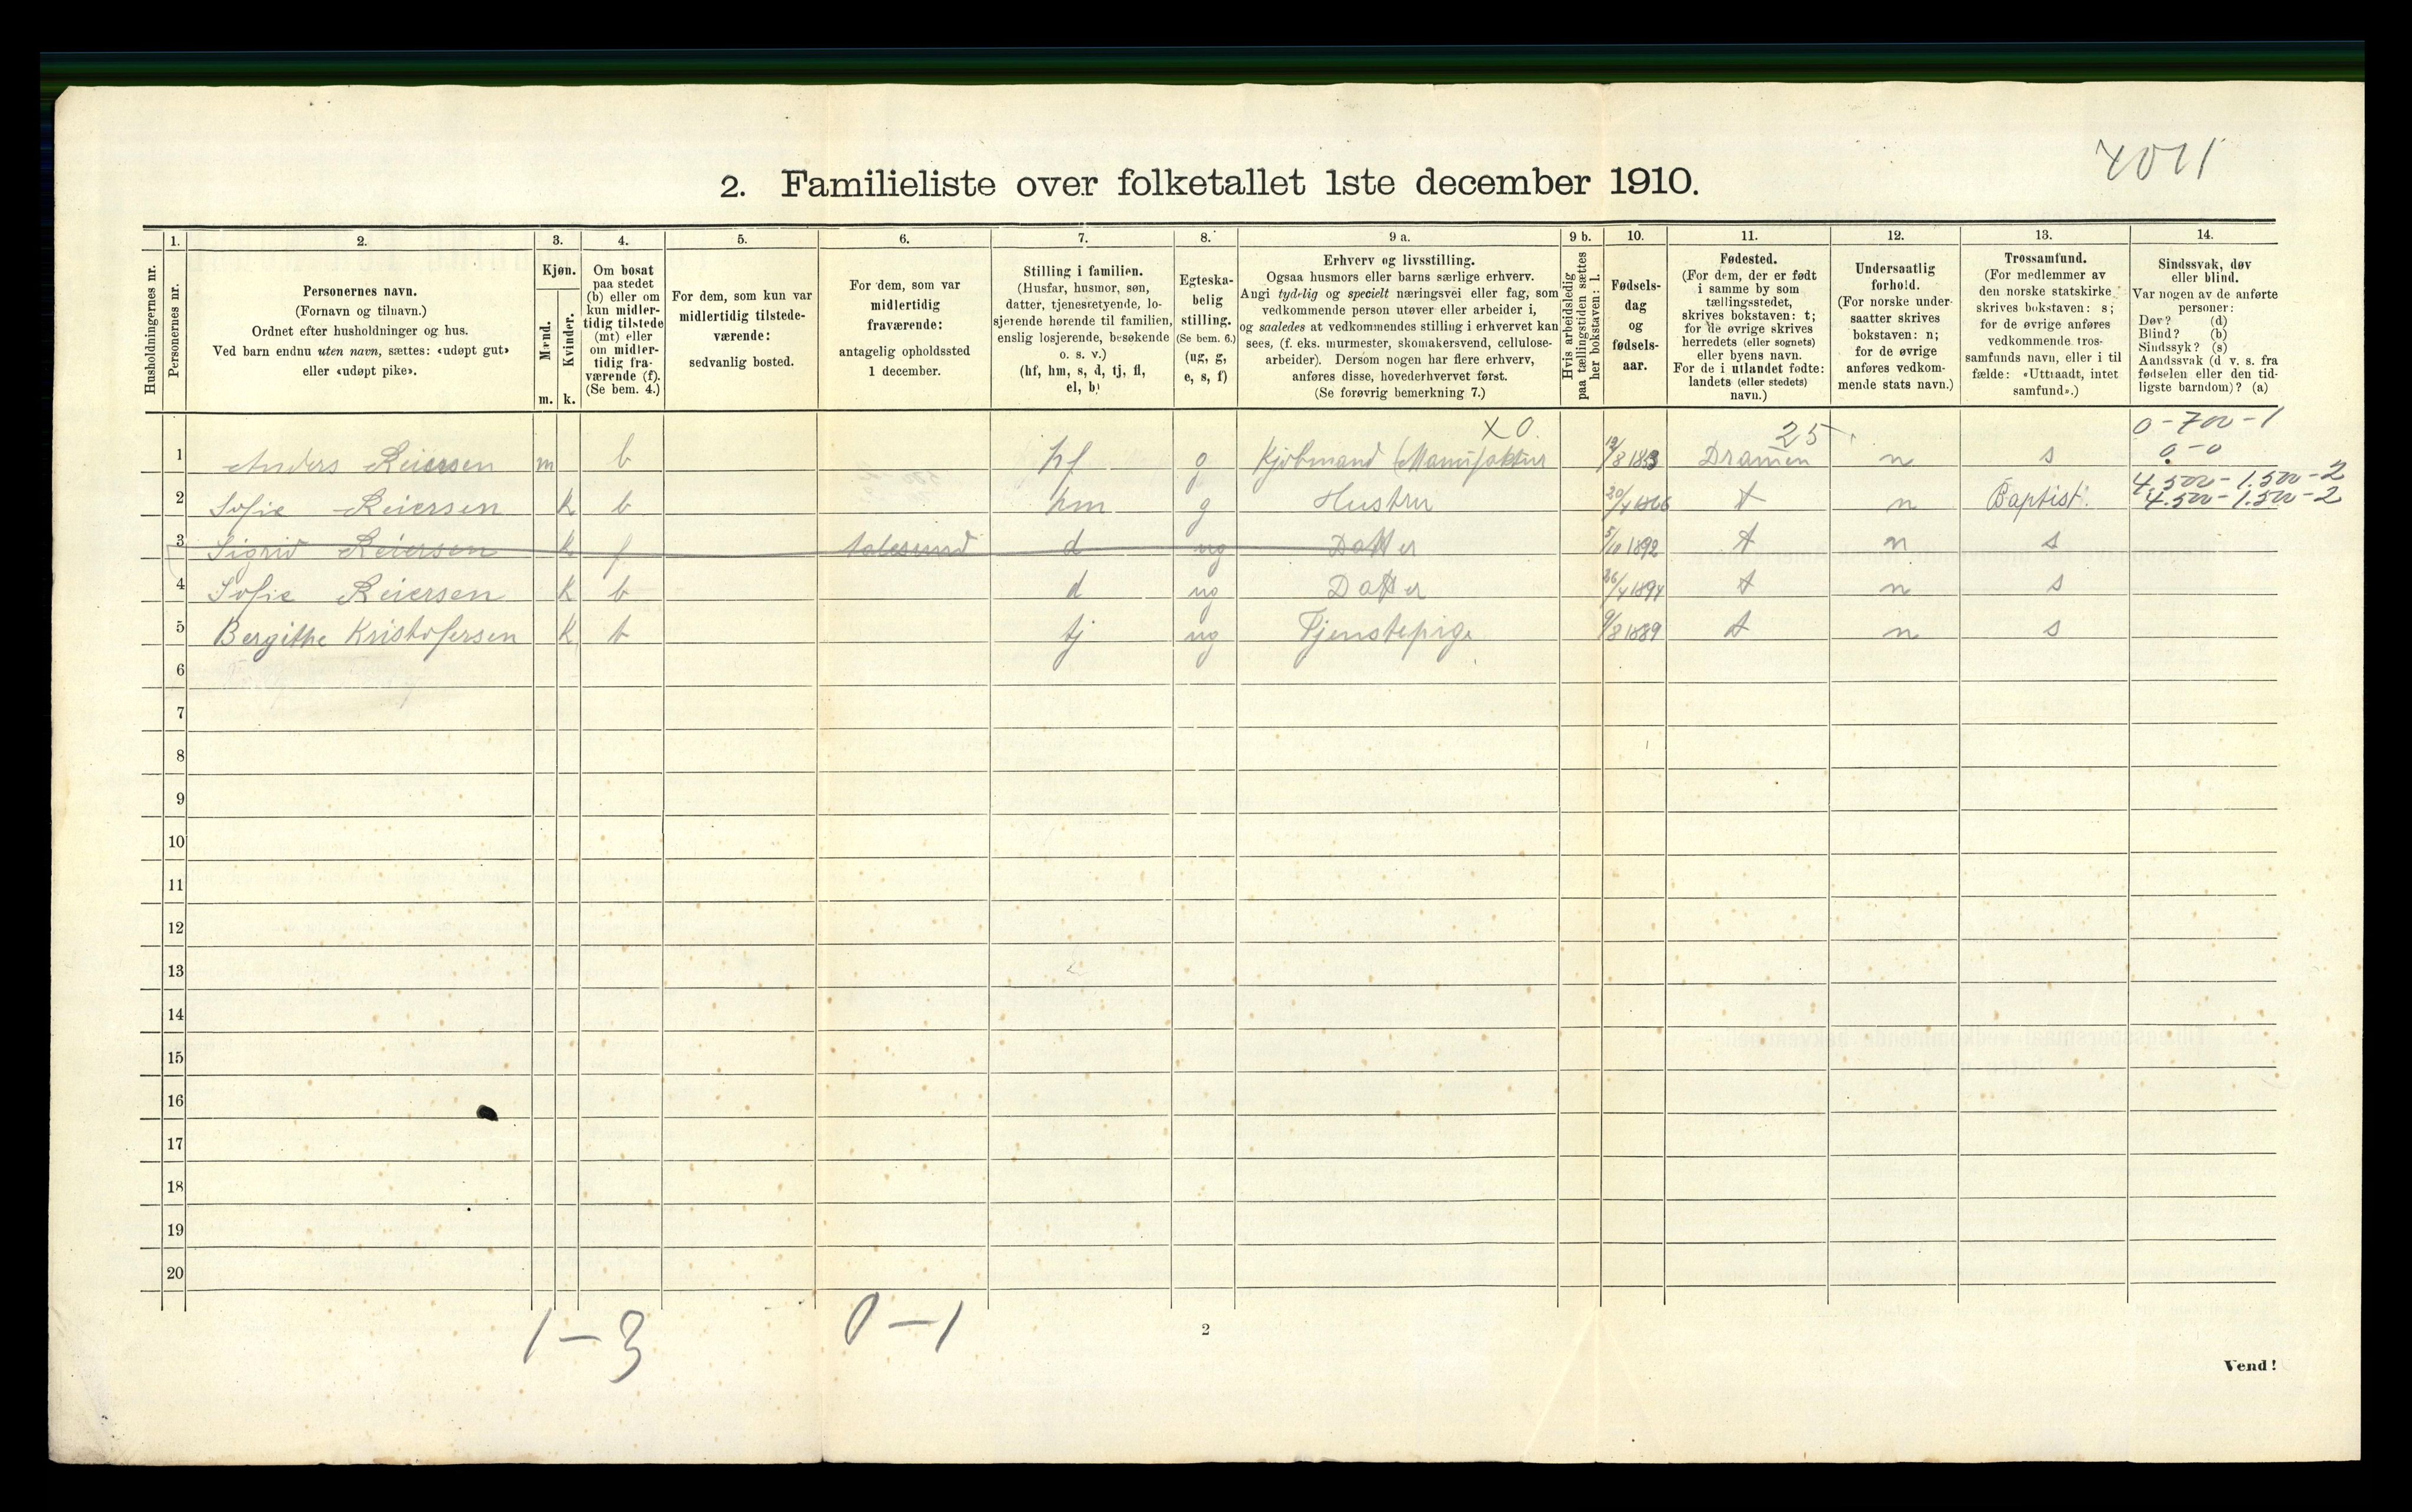 4011
2. Familieliste over folketallet 1ste december 1910.
1. 2. 3. 4. 5. 6. 7. 8. 9 a. 9 b. 10. 11. 12. 13. 14.
Husholdningernes nr.
Personernes nr.
Personernes navn.
(Fornavn og tilnavn.)
Ordnet efter husholdninger og hus.
Ved barn endnu uten navn, sættes: «udøpt gut»
eller «udøpt pike».
Kjøn.
Mænd.
Kvinder.
m. k.
Om bosat
paa stedet
(b) eller om
kun midler-
tidig tilstede
(mt) eller
om midler-
tidig fra-
værende (f).
(Se bem. 4.)
For dem, som kun var
midlertidig tilstede-
værende:
sedvanlig bosted.
For dem, som var
midlertidig
fraværende:
antagelig opholdssted
1 december.
Stilling i familien.
(Husfar, husmor, søn,
datter, tjenestetyende, lo-
sjerende hørende til familien,
enslig losjerende, besøkende
o. s. v.)
(hf, hm, s, d, tj, fl,
el, b)
Egteska-
belig
stilling.
(Se bem. 6.)
(ug, g,
e, s, f)
Erhverv og livsstilling.
Ogsaa husmors eller barns særlige erhverv.
Angi tydelig og specielt næringsvei eller fag, som
vedkommende person utøver eller arbeider i,
og saaledes at vedkommendes stilling i erhvervet kan
sees, (f. eks. murmester, skomakersvend, cellulose-
arbeider). Dersom nogen har flere erhverv,
anføres disse, hovederhvervet først.
(Se forøvrig bemerkning 7.)
Hvis arbeidsledig
paa tællingstiden sættes
her bokstaven: l.
Fødsels-
dag
og
fødsels-
aar.
Fødested.
(For dem, der er født
i samme by som
tællingsstedet,
skrives bokstaven: t;
for de øvrige skrives
herredets (eller sognets)
eller byens navn.
For de i utlandet fødte:
landets (eller stedets)
navn.)
Undersaatlig
forhold.
(For norske under-
saatter skrives
bokstaven: n;
for de øvrige
anføres vedkom-
mende stats navn.)
Trossamfund.
(For medlemmer av
den norske statskirke
skrives bokstaven: s;
for de øvrige anføres
vedkommende tros-
samfunds navn, eller i til
fælde: «Uttraadt, intet
samfund».)
Sindssvak, døv
eller blind.
Var nogen av de anførte
personer:
Døv? (d)
Blind? (b)
Sindssyk? (s)
Aandssvak (d. v. s. fra
fødselen eller den tid-
ligste barndom)? (a)
X 0. 25 0-700-1
1 Anders Reiersen m b hf g Kjøbmand (Manufaktur Dramen n s 0-0
4.500-1.500-2
2 Sofie Reiersen k b hm g Hustru 20/4 1866 t n Baptist. 4.500-1.500-2
3 Sigrid Reiersen k f Aalesund d ug Datter 5/10 1892 t n s
4 Sofie Reiersen k b d ug Datter 26/4 1894 t n s
5 Bergithe Kristofersen k b tj ug Tjenstepige 9/8 1889 t n s
6
7
8
9
10
11
12
13
14
15
16
17
18
19
20
1-3 0-1
2
Vend!